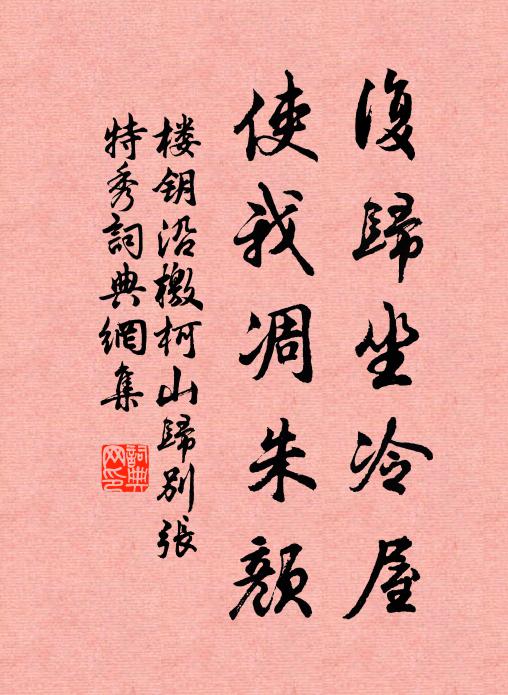 復歸坐冷屋
使我凋朱顏
楼钥沿檄柯山歸别張
特秀詞典網集
詞典网印